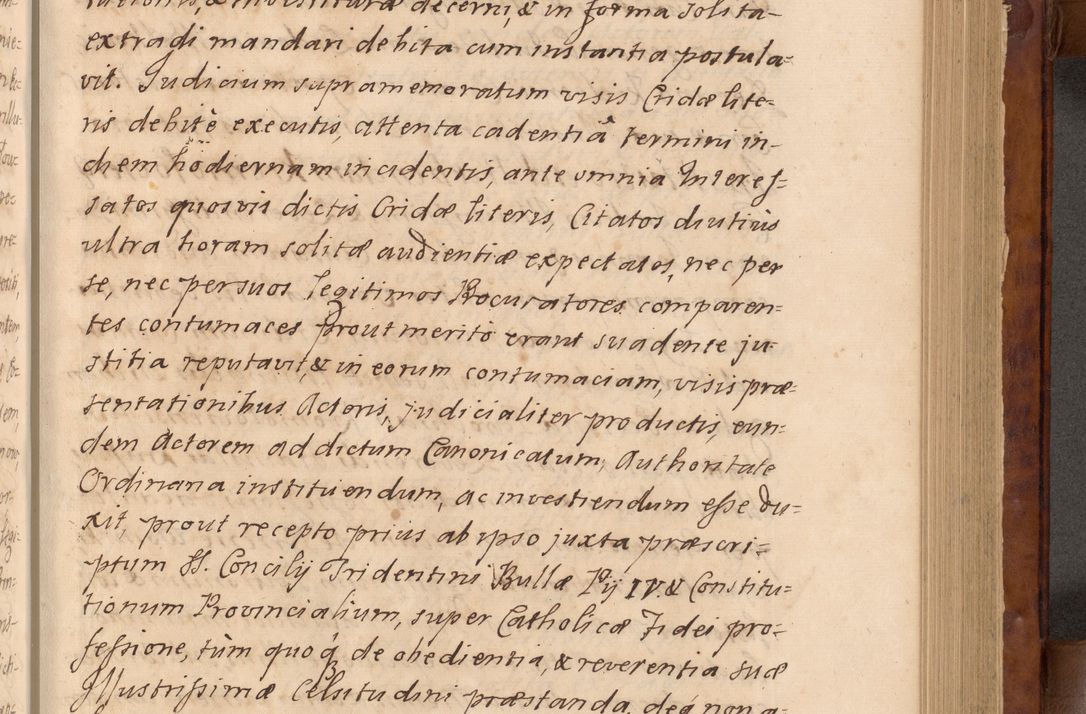 & investitura decerni, & in forma solita-
extradi mandari debita cum instantia postula-
vit. Judicium supramemoratum visis Cridæ lite-
ris debitè executis, attenta cadentiâ termini in-
diem hodiernam incidentis, ante omnia Interes-
satos quosvis dictis Cridæ literis, Citatos diutiùs
ultra horam solitæ audientiæ expectatos, nec per
se, nec per suos legitimos Procuratores comparen-
tes contumaces prout meritò erant suadente ju-
stitia reputavit, & in eorum contumaciam, visis præ-
sentationibus Actoris, judicialiter productis, eun-
dem Actorem ad dictum Canonicatum, Authoritate
Ordinaria instituendum, ac investiendum esse du-
xit, prout recepto prius ab ipso juxta præscri-
ptum SS. Concilij Tridentini Bullæ Pij IV. & Constitu-
tionum Provincialium, super Catholicæ Fidei pro-
fessione, tùm quoq́ de obedientia, & reverentia suæ
Illustrissimæ Celsitudini præstanda, deq́ non a-